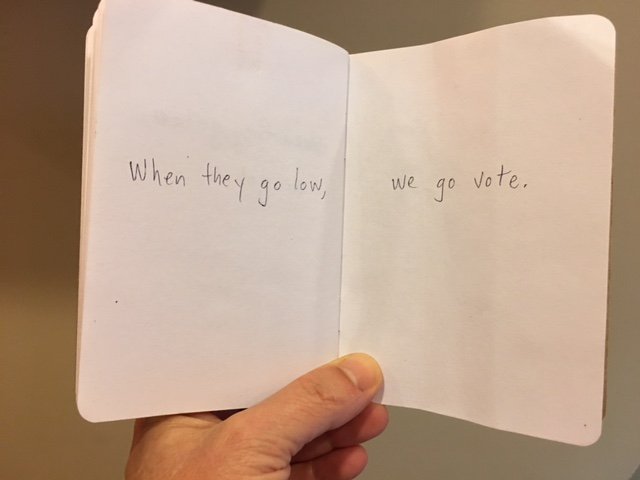 When they go low,
we go vote.